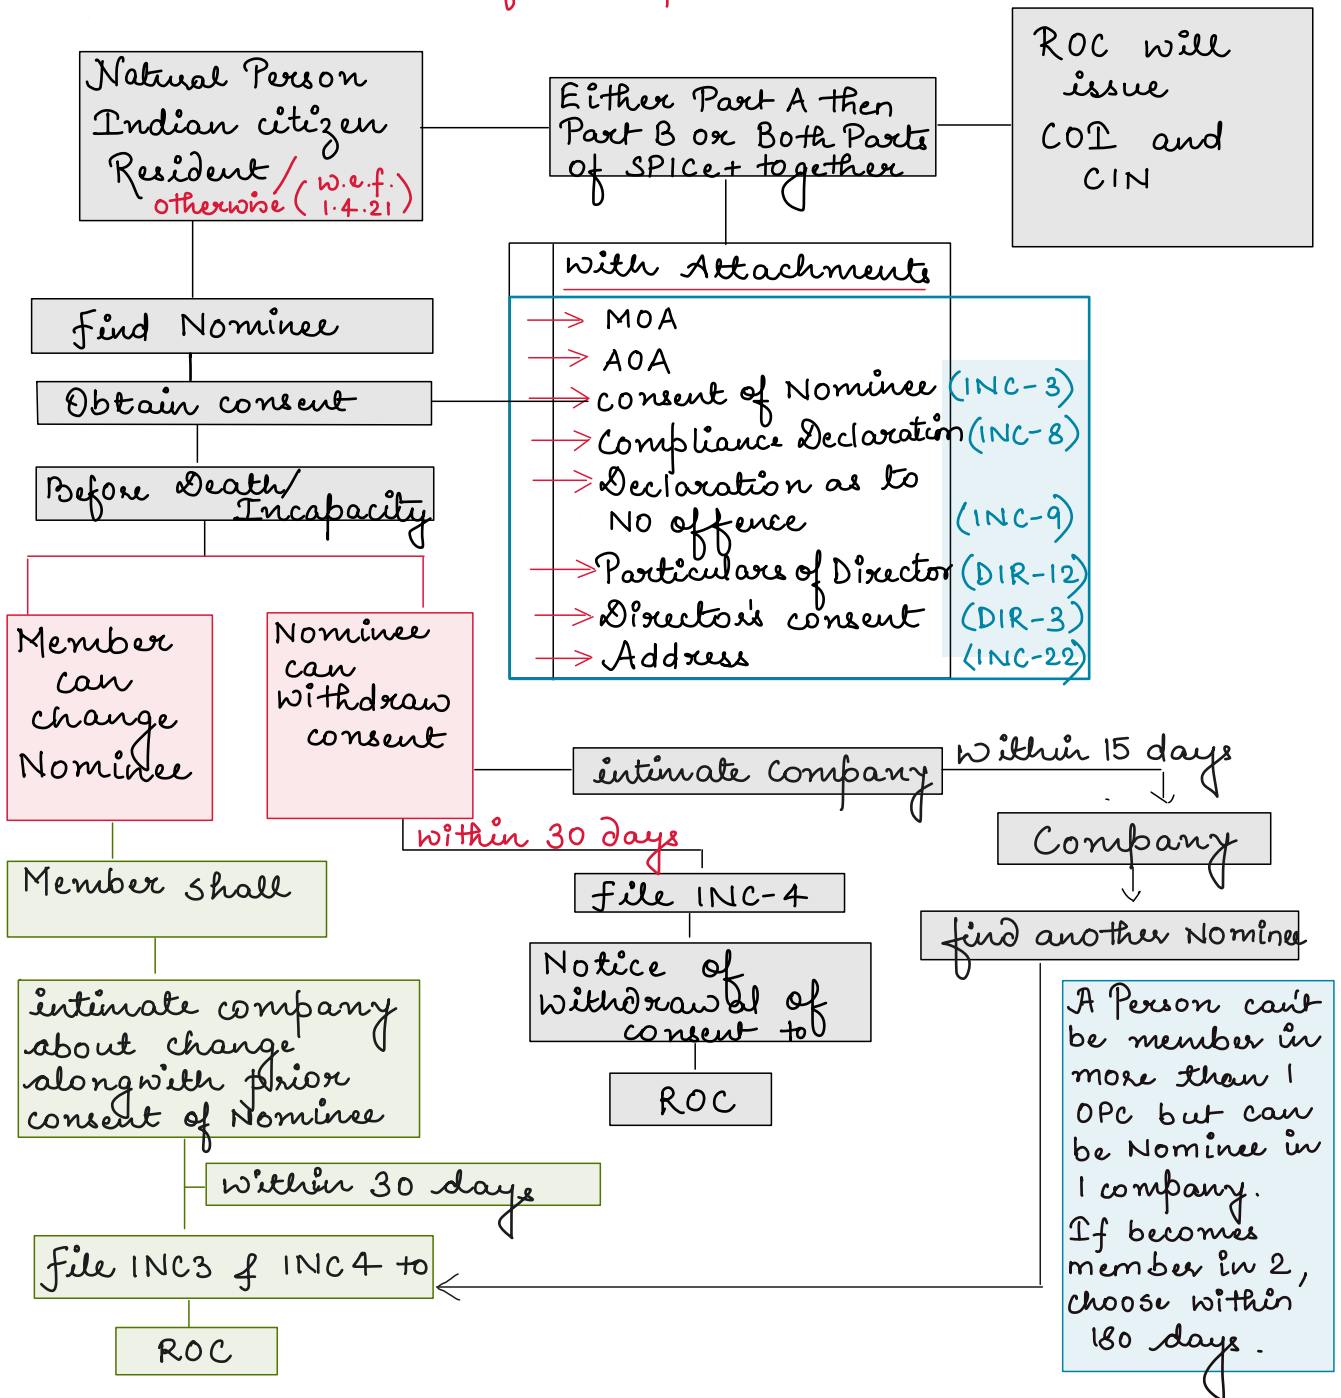 Natural Person
Indian citizen
Resident/
otherwise (w.e.f.
1.4.21)
Either Part A then
Part B or Both Parts
of SPICe+ together
ROC will
issue
COI and
CIN
with Attachments
MOA
AOA
consent of Nominee (INC-3)
Compliance Declaration (INC-8)
Declaration as to
NO offence (INC-9)
Particulars of Director (DIR-12)
Director's consent (DIR-3)
Address (INC-22)
find Nominee
Obtain consent
Before Death/
Incapacity
Member
can
change
Nominee
Nominee
can
withdraw
consent
intimate Company
within 15 days
Company
find another Nominee
within 30 days
file INC-4
Notice of
withdrawal of
consent to
ROC
Member shall
intimate company
about change
alongwith prior
consent of Nominee
within 30 days
file INC3 & INC4 to
ROC
A Person can't
be member in
more than 1
OPC but can
be Nominee in
1 company.
If becomes
member in 2,
choose within
180 days.